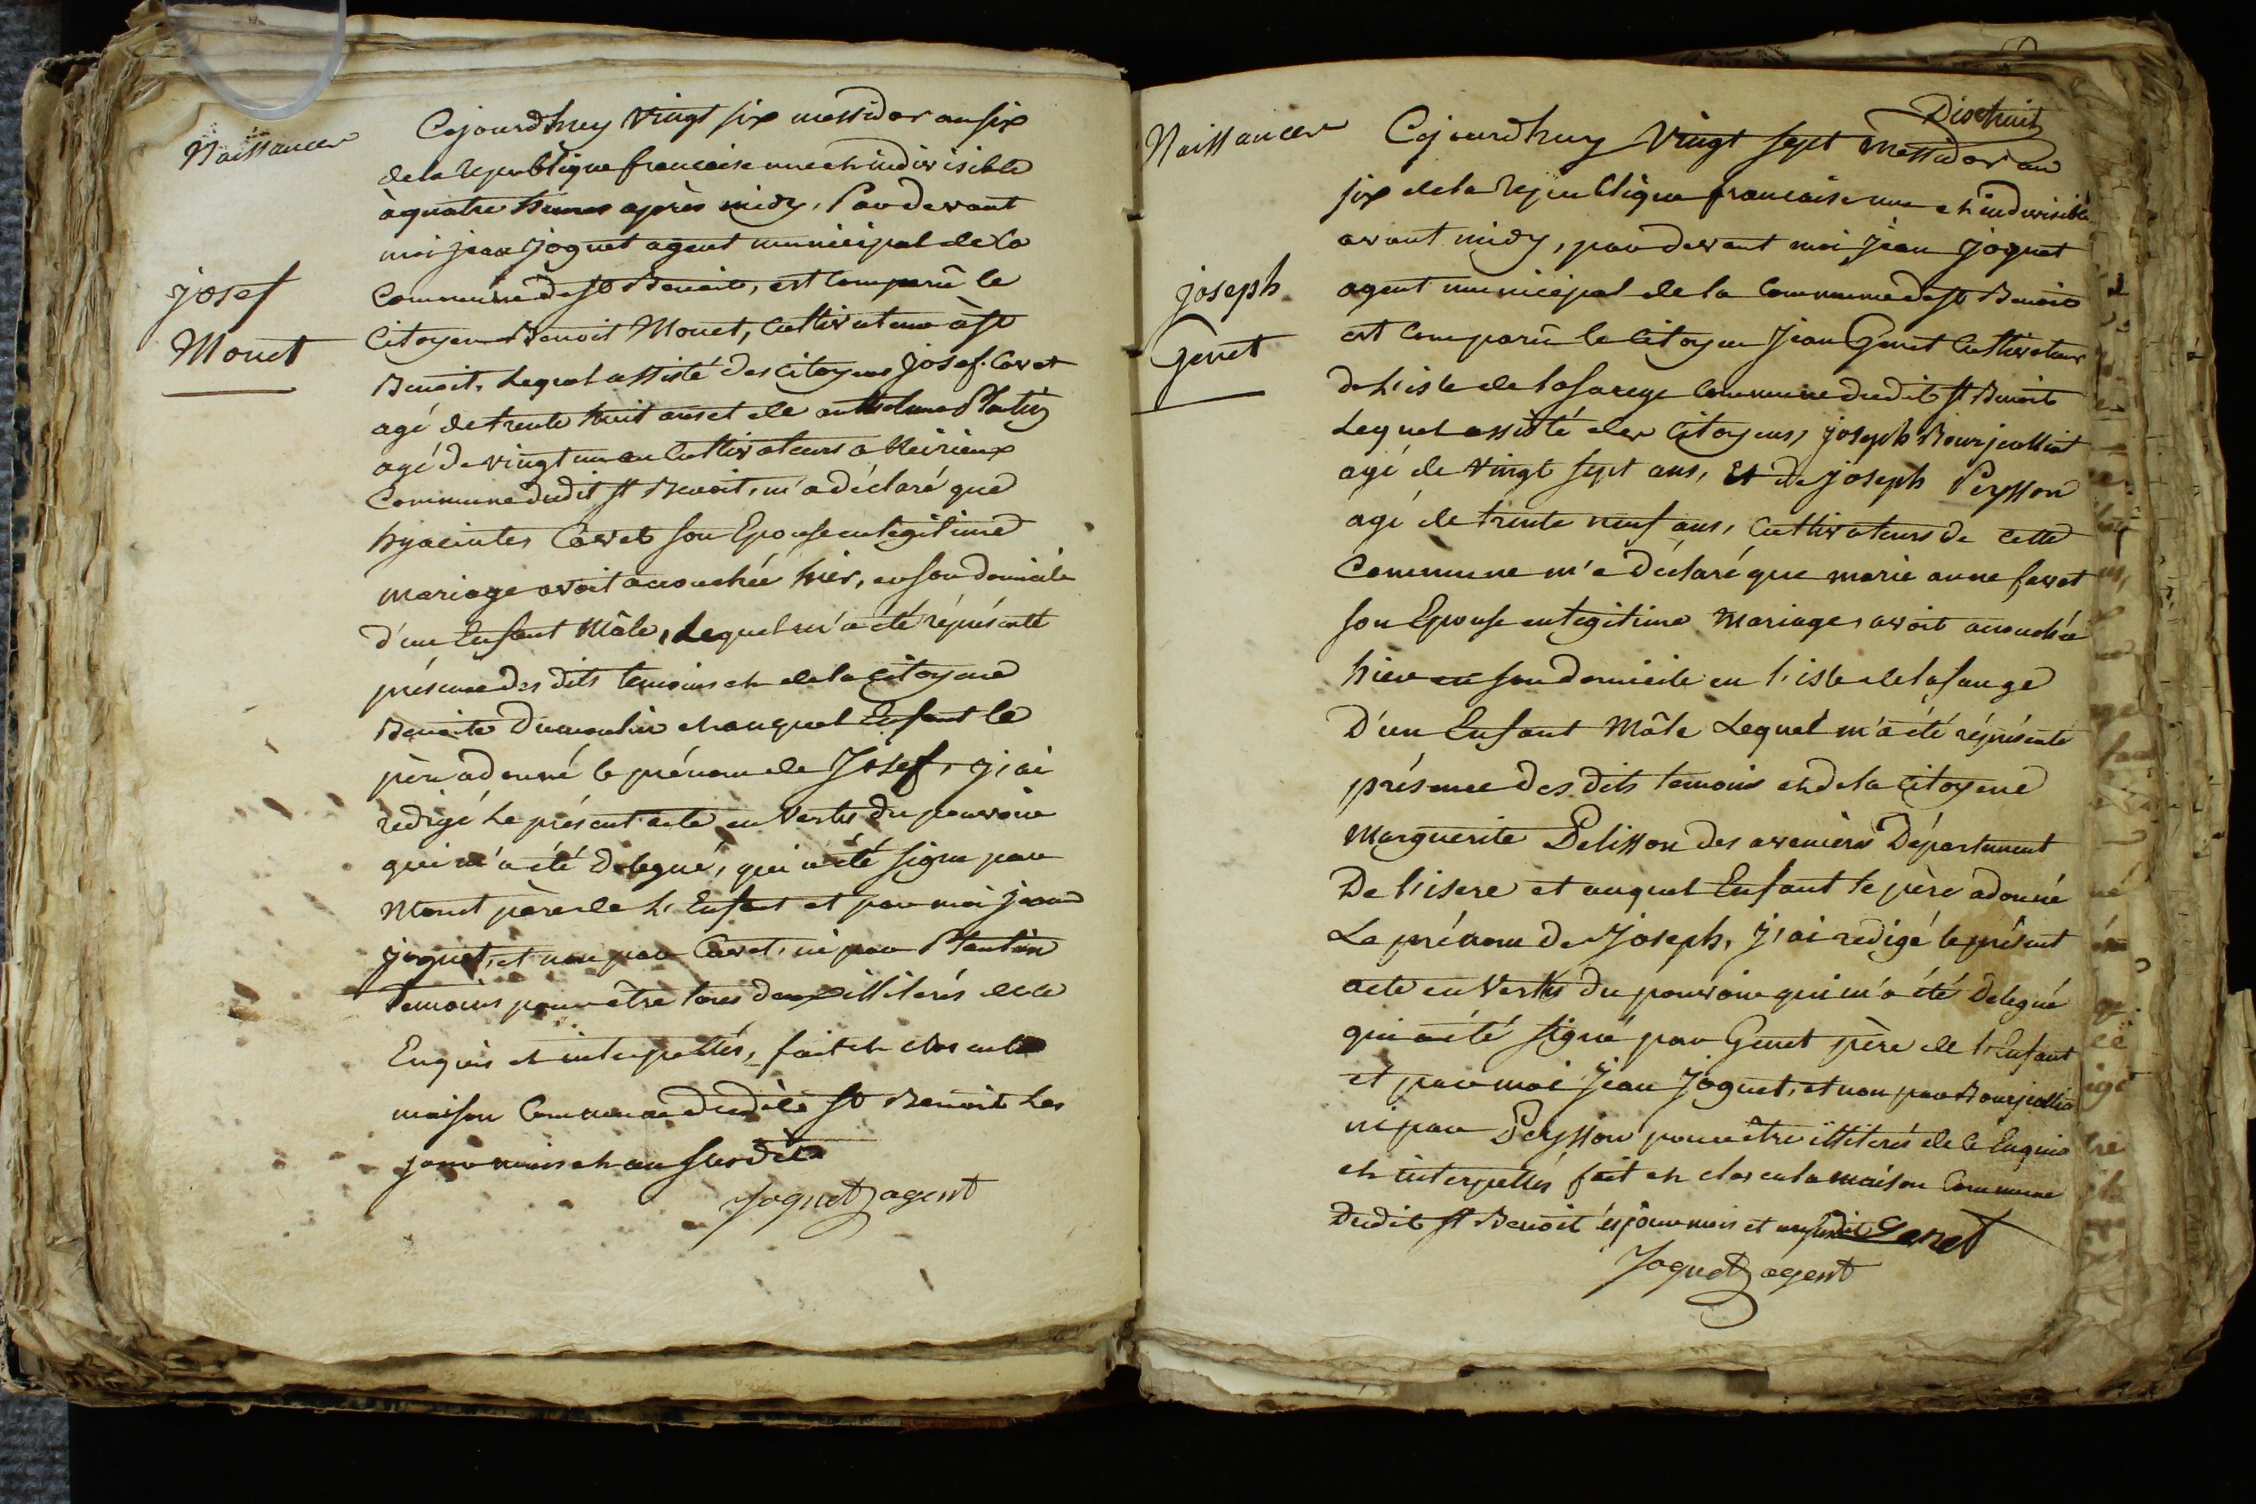 Naissances
josef
Monet
Cejourdhuy Vingt six messidor an six
de la Republique francaise une et indivisible
à quatre heures après midy, Par devant
moi jean joguet agent municipal de la
Commune de St Benoit, est Comparû le
Citoyen Benoit Monet, Cultivateur à St
Benoit, Lequel assisté des Citoyens josef Cavet
agé de trente huit ans et de anthelme Plantin
agé de vingt un an Cultivateurs a
Commune dudit St Benoit, m'a déclaré que
hyacintes Cavet son Epouse en legitime
mariage avoit acouchée hier, en son domicile
d'un Enfant Mâle, Lequel m'a été réprésenté
présence des dits temoins et de la Citoyene
Benoite Dumoulin et auquel Enfant le
père a donné le prénom de Josef, j'ai
redigé Le présent acte en Vertu du pouvoir
qui m'a été delegué, qui a été signe par
Monet père de L'Enfant et par moi jean
joguet, et non par Cavet, ni par Plantin
Temoins pour être tous deux illiterés de ce
Enquis et interpellés, fait et clos en la
maison Commune dudit St Benoit Les
jour mois et an susdits
Joguet agent
Dixhuit
Naissances
joseph
Genet
Cejourdhuy Vingt sept Messidor an
six de la Republique francaise une et indivisible
avant midy, par devant moi jean joguet
agent municipal de la Commune de St Benoit
est Comparû le Citoyen jean Genet Cultivateur
de L'isle de la Sauge Commune dudit St Benoit
Lequel assisté des Citoyens, joseph Bourjaillat
agé de Vingt sept ans, Et de joseph Peysson
agé de trente neuf ans, Cultivateurs de Cette
Commune m'a déclaré que marie anne favet
son Epouse en legitime Mariage avoit acouchée
hier en son domicile en l'isle de la sauge
D'un Enfant Mâle Lequel m'a été réprésenté
présence des dits temoins et de la Citoyene
Marguerite Pelisson des avenieres Département
De l'isere et auquel Enfant le père a donné
Le prénom de Joseph, j'ai redigé le présent
acte en Vertu du pouvoir qui m'a été Delegué
qui a été signé par Genet père de l'Enfant
et par moi jean joguet, et non par
ni par Peysson pour être illiterés de ce Enquis
et interpellés fait et clos en la maison Commune
Dudit St Benoit les jour mois et an susdit Genet
Joguet agent